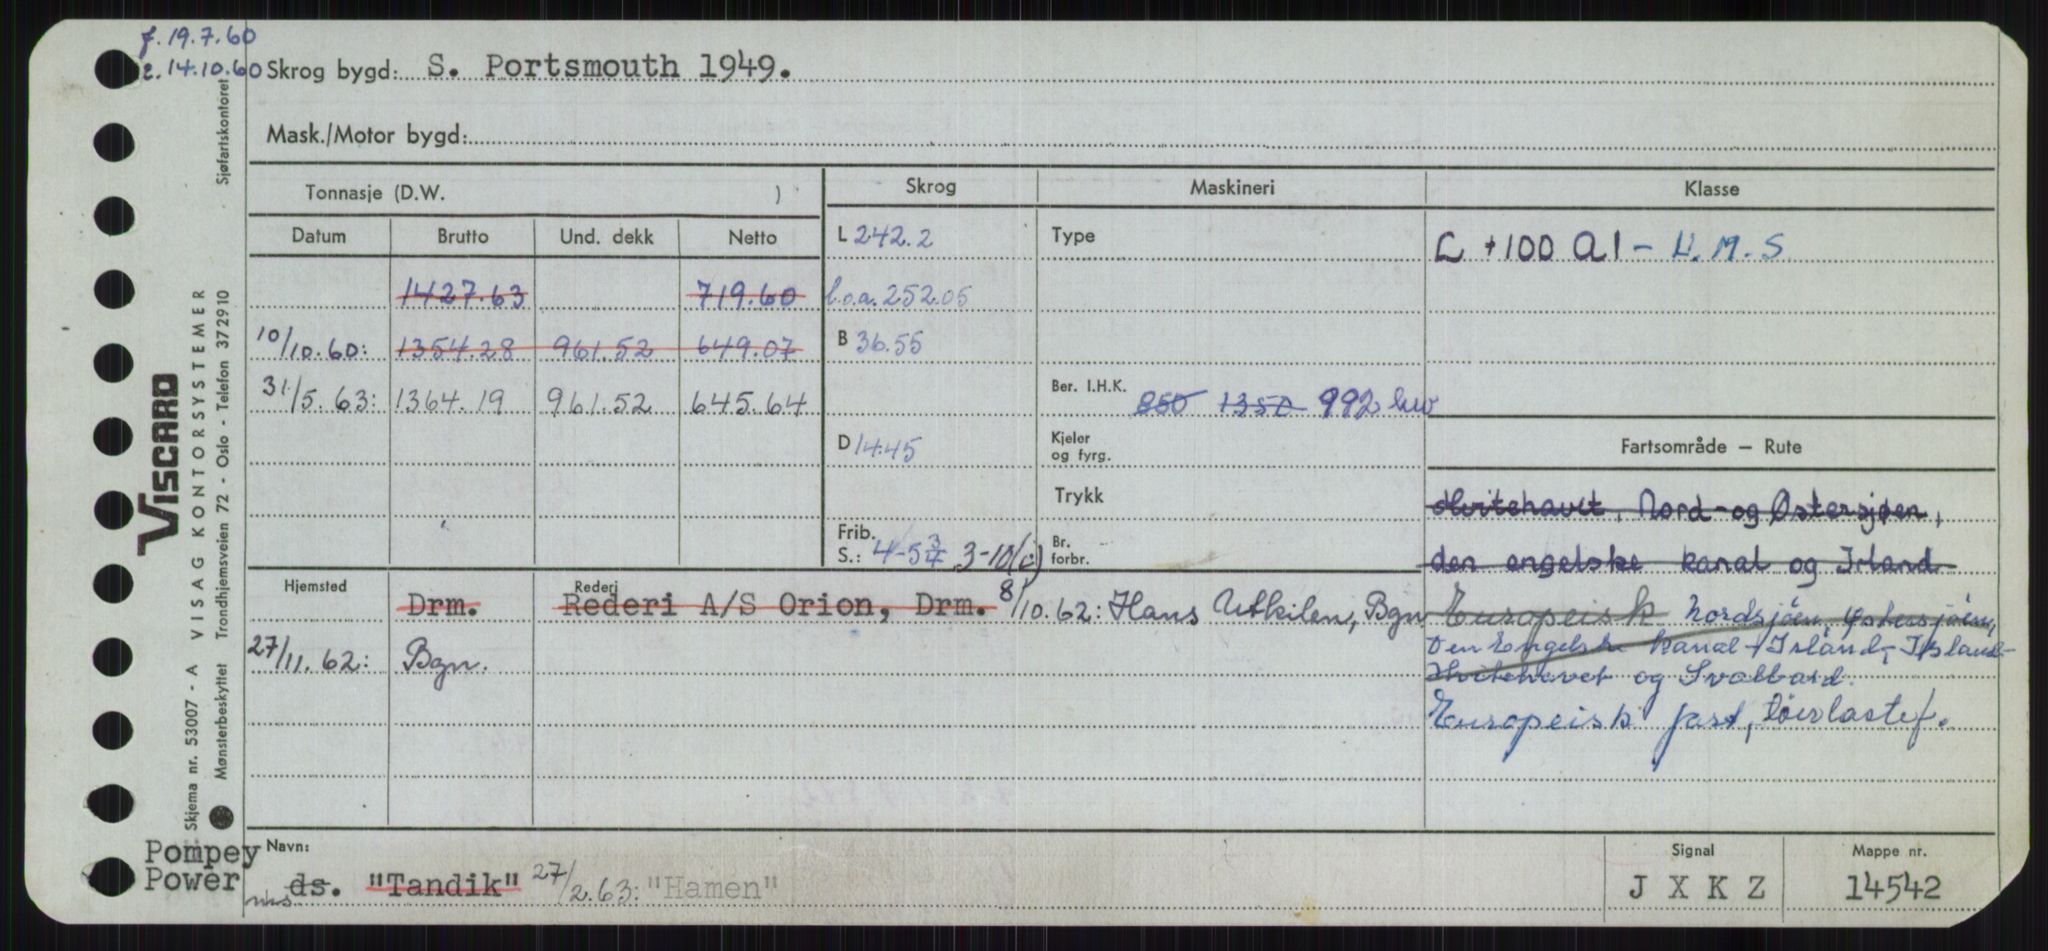 f. 19.7.60
2. 14.10.60 Skrog bygd: S. Portsmouth 1949.
Mask./Motor bygd:
Tonnasje (D.W. )
Skrog
Maskineri
Klasse
Datum Brutto Und. dekk Netto
1427.63 719.60
10/10.60: 1354.28 961.52 649.07
31/5.63: 1364.19 961.52 645.64
L 242.2
l.o.a. 252.05
B 36.55
D 14.45
Frib.
S.: 4-5 3/4 3-10(i)
Type
Ber. I.H.K. 850 1350 992 hw
Kjeler
og fyrg.
Trykk
Br.
forbr.
L +100 A1 - L.M.S
Fartsområde — Rute
Hvitehavet, Nord- og Østersjøen,
den engelske kanal og Irland
Europeisk Nordsjøen, Østersjøen,
Den Engelske kanal + Irland, Island-
Hvitehavet og Svalbard.
Europeisk fart,
Hjemsted Rederi
Drm. Rederi A/S Orion, Drm. 8/10.62: Hans Utkilen, Bgn
27/11.62: Bgn.
Pompey
Power
Navn:
ms ds. "Tandik" 27/2.63: "Hamen"
Signal
J X K Z
Mappe nr.
14542
VISCARD
Skjema nr. 53007 - A VISAG KONTORSYSTEMER
Mønsterbeskyttet Trondhjemsveien 72 - Oslo - Telefon 372910 Sjøfartskontoret